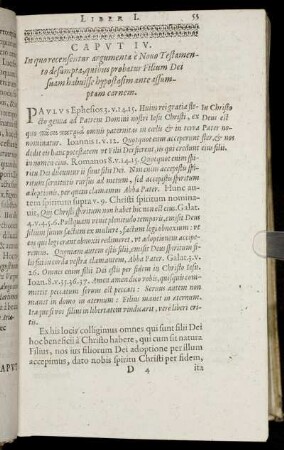 LIBER I. 53
CAPUT IV.
In quo recensentur argumenta è Novo Testamen-
to desumpta, quibus probatur Filium Dei
suam habuisse hypostasim ante assum-
ptam carnem.
PAULUS Ephesios 3. v. 14. 15. Huius rei gratia fle- In Christo
cto genua ad Patrem Domini nostri Iesu Christi, ex Deus est
quo omnis paternitas in cœlis & in terra Pater no-
minatur. Ioannis 1. v. 12. Quotquot eum acceper
dedit eu hanc potestatem ut Filii Dei fierent, iis qui credunt
in nomen eius. Romanos 8. v. 14. 15. Quotquot enim spi-
ritu Dei ducuntur ii sunt filii Dei. Non enim accepistis spi-
ritum servitutis rursus ad metum, sed accepistis spiritum
adoptionis, per quem clamamus Abba Pater. Hunc au-
tem spiritum supra v. 9. Christi spiritum nominat,
Qui Christi spiritum non habet hic non est eius. Galat.
4. v. 4. 5. 6. Postquam venit plenitudo temporis, emisit Deus
filium suum factum ex muliere, factum legi obnoxium:
ut eos qui legi erant obnoxii redimeret, ut adoptionem accipe-
remus. Quoniam autem estis filii, emisit Deus spiritum filii
sui in corda vestra clamantem, Abba Pater. Galat. 3. v.
26. Omnes enim filii Dei estis per fidem in Christo Iesu,
Ioan. 8. v. 35. 36. 37. Amen amen dico vobis, quisquis com-
mittit peccatum servus est peccati: Servus autem non
manet in domo in æternum: Filius manet in æternum.
Itaque si vos filius in libertatem vindicarit, verè liberi
eritis.
Ex his locis colligimus omnes qui sunt filii Dei
hoc beneficii à Christo habere, qui cum sit natura
Filius, nos ius filiorum Dei adoptione per illum
accepimus, dato nobis spiritu Christi per fidem,
D 4 ita
CAPUT